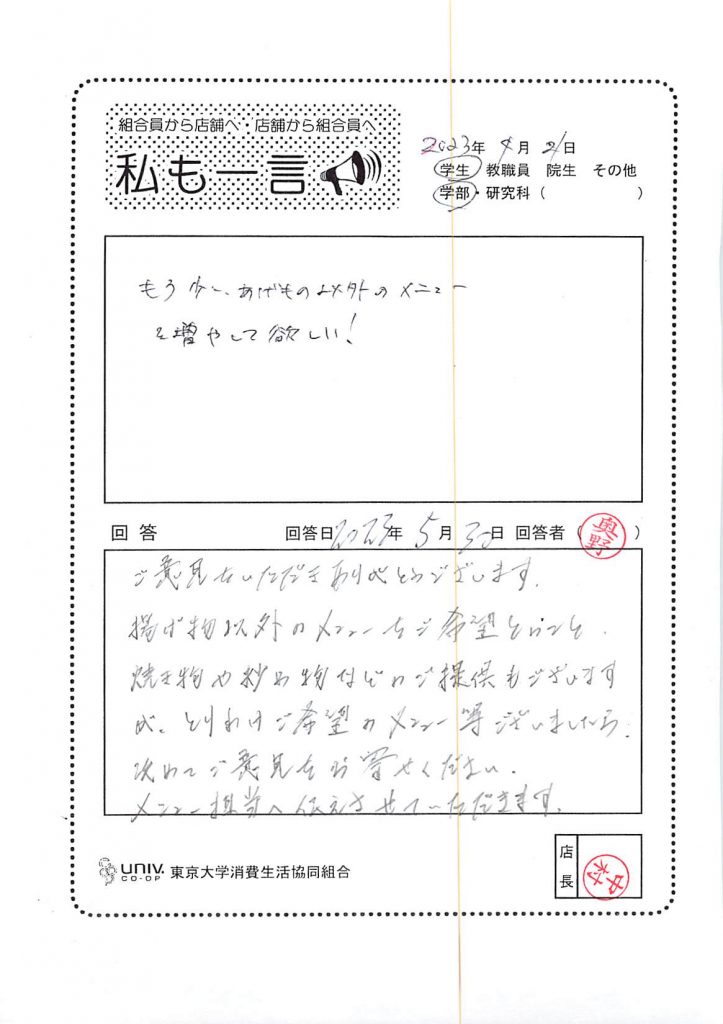 組合員から店舗へ・店舗から組合員へ
私も一言
2023年 4月 21日
学生 教職員 院生 その他
学部・研究科( )
もう少しあげもの以外のメニュー
を増やして欲しい!
回答 回答日2023年 5月 30日 回答者( 奥野 )
ご意見をいただきありがとうございます。
揚げ物以外のメニューをご希望とのこと、
焼き物や炒め物などのご提供もございます
が、とりわけご希望のメニュー等ございましたら、
改めてご意見をお寄せください。
メニュー担当へ伝えさせていただきます。
UNIV. CO-OP 東京大学消費生活協同組合
店長 中村